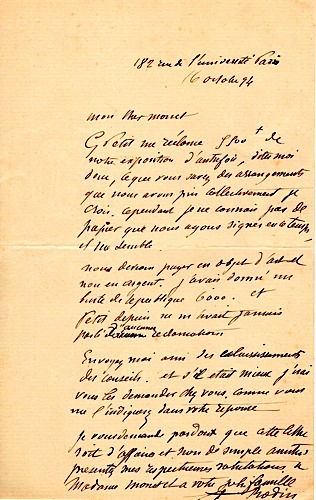 182 rue de l'université Paris
6 octobre 94
mon cher monet
G Petit me réclame f de
notre exposition d'autrefois, dites moi
donc ce que vous savez des arrangements
que nous avons pris collectivement je
crois. cependant je ne connais pas de
papier que nous ayons signés en ce temps
et ensemble.
nous devions payer en objet d'art et
non en argent. j'avais donné un
buste de la république 6000. et
Petit depuis ne m'avait jamais
parlé d'aucunes réclamations
Envoyez moi ami des éclaircissements
des conseils. et s'il était mieux j'irai
vous les demander chez vous, comme vous
me l'indiquerez dans votre réponse
je vous demande pardon que cette lettre
soit d'affaire et non de simple amitié
présentez mes respectueuses salutations, à
Madame monet et à votre jolie famille
Rodin